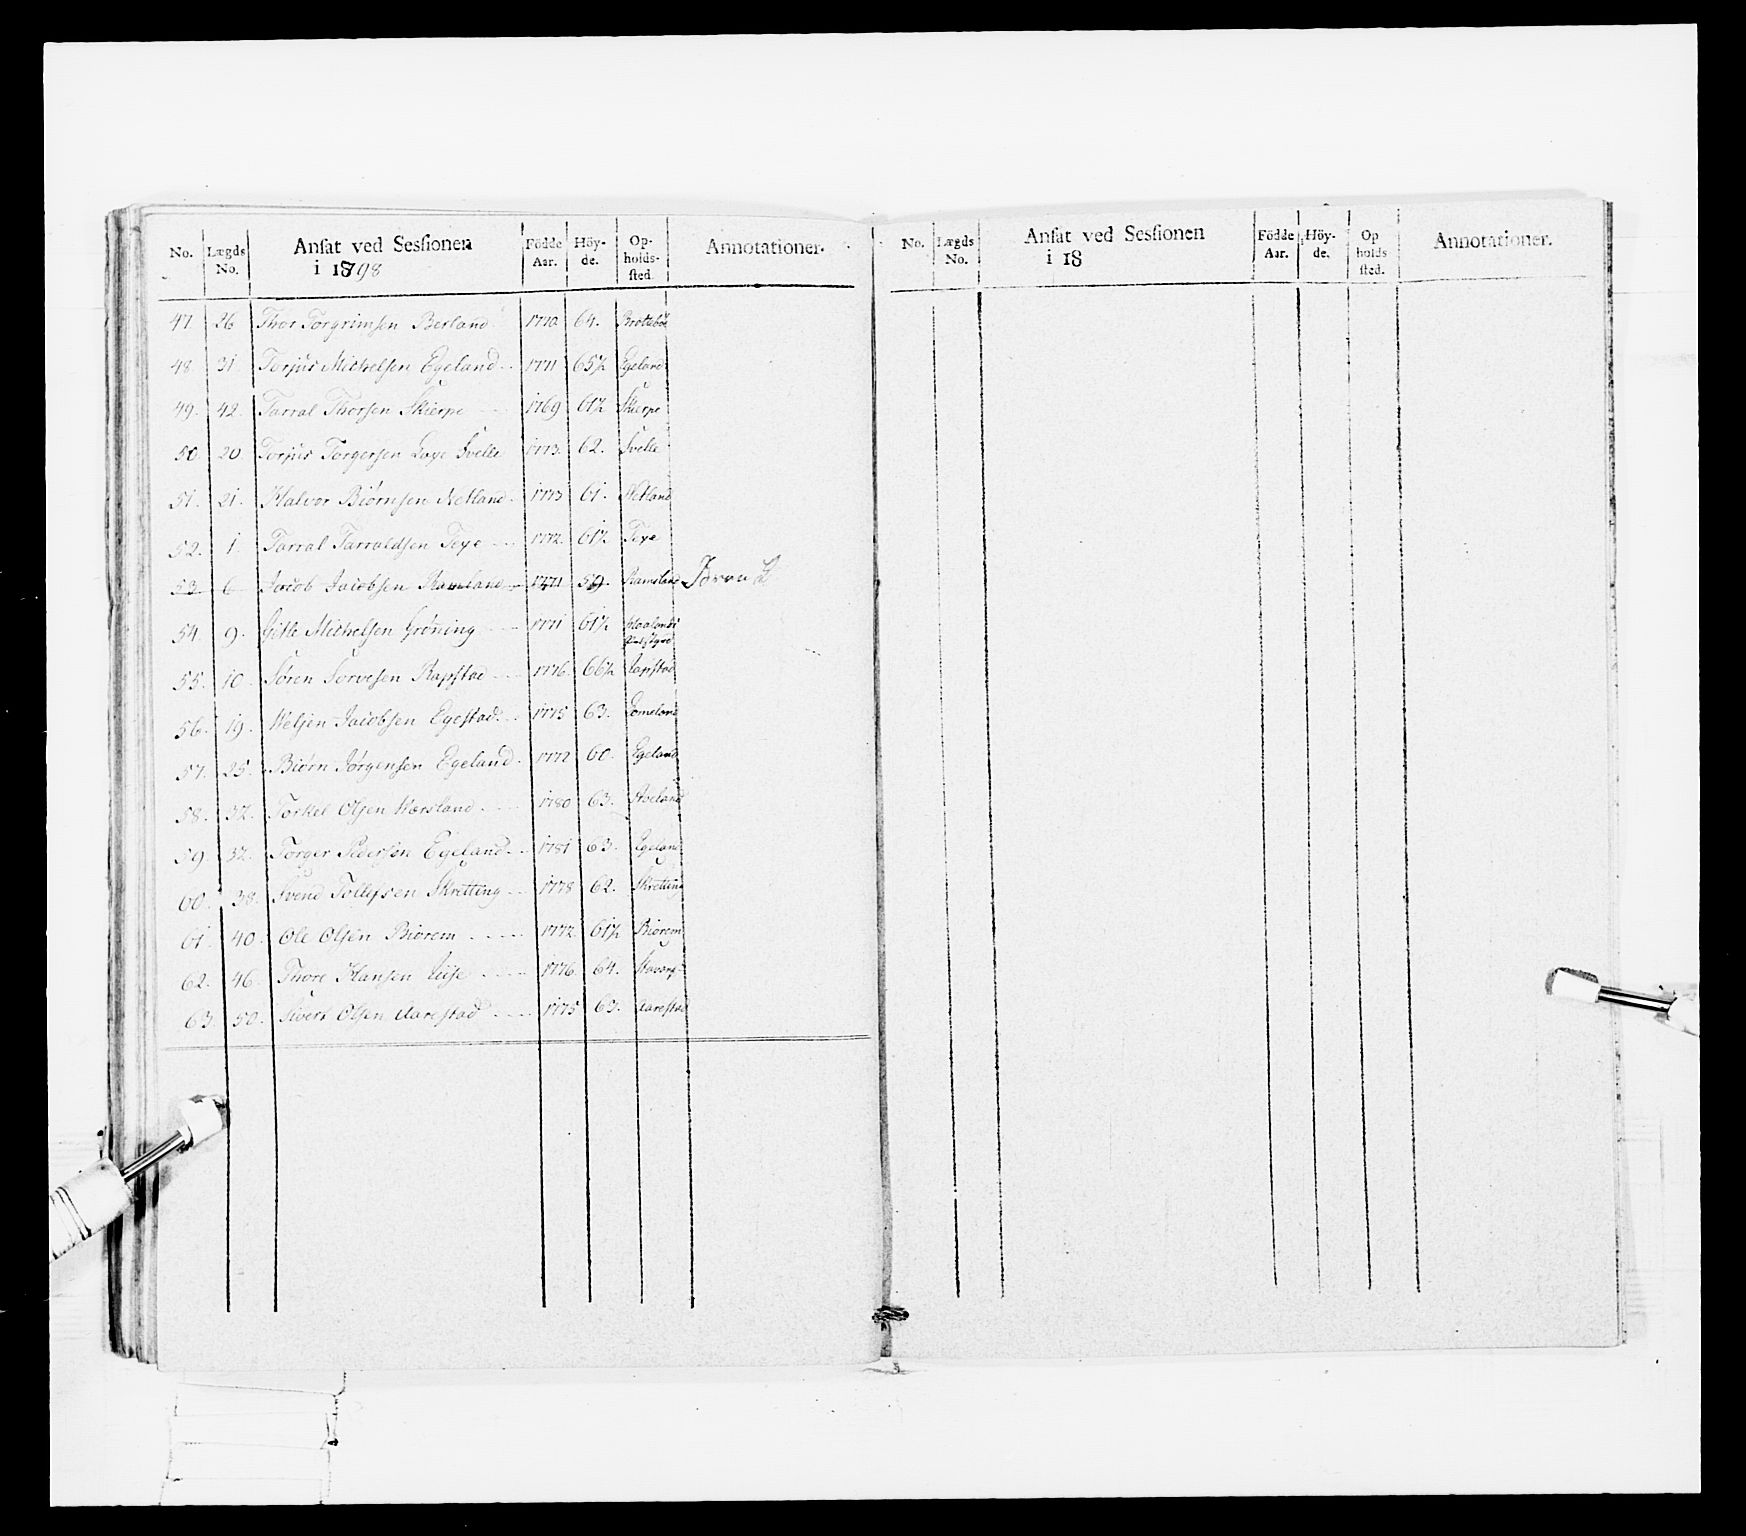 No. Lægds No. Ansat ved Sessionen i 1798 Födde Aar. Höyde. Opholdssted. Annotationer.
47. 26 Thor Torgrimsen Berland 1770. 64. Broteböe
48. 31 Torjus Michelsen Egeland 1771 65½ Egeland
49. 42. Tarral Thorsen Skierpe 1769 61½ Skierpe
50 20 Torjus Torgersen Svelle 1773. 62. Svelle
51. 21. Halvor Biørnsen Netland 1773 61. Netland
52. 1. Tarral Tarraldsen 1772. 61½
53 6 Jacob Jacobsen Ramsland 1771 59. Ramsland
54. 9. Gitle Michelsen Grøning 1771 61½
55. 10. Søren Rapstad 1776. 66½ Rapstad
56. 19. Jacobsen Egestad 1775 63.
57. 25. Biørn Jørgensen Egeland 1772 60. Egeland
58. 32. Torkel Olsen 1780 63.
59. 32. Torger Pedersen Egeland 1781 63. Egeland
60. 38. Svend Tollefsen Skretting 1778 62. Skretting
61. 40. Ole Olsen Biørem 1772. 61½ Biørem
62. 46. Thore Hansen 1776. 64.
63 50. Sivert Olsen Aarestad 1775 63. Aarestad
No. Lægds No. Ansat ved Sessionen i 18 Födde Aar. Höyde. Opholdssted. Annotationer.